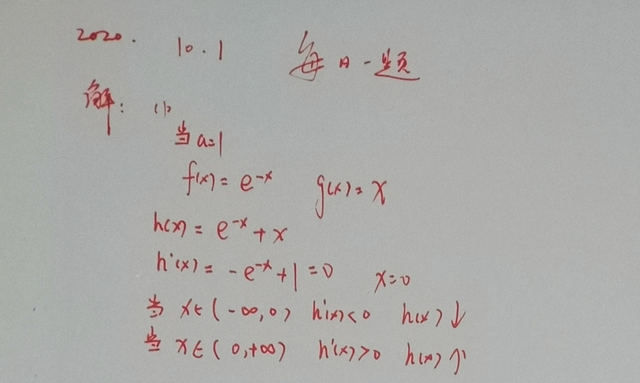 2020. 10.1 每日一题
解: (1)
当 a=1
f(x) = e^{-x} g(x) = x
h(x) = e^{-x} + x
h'(x) = -e^{-x} + 1 = 0 x=0
当 x∈(-∞,0) h'(x)<0 h(x)↓
当 x∈(0,+∞) h'(x)>0 h(x)↑